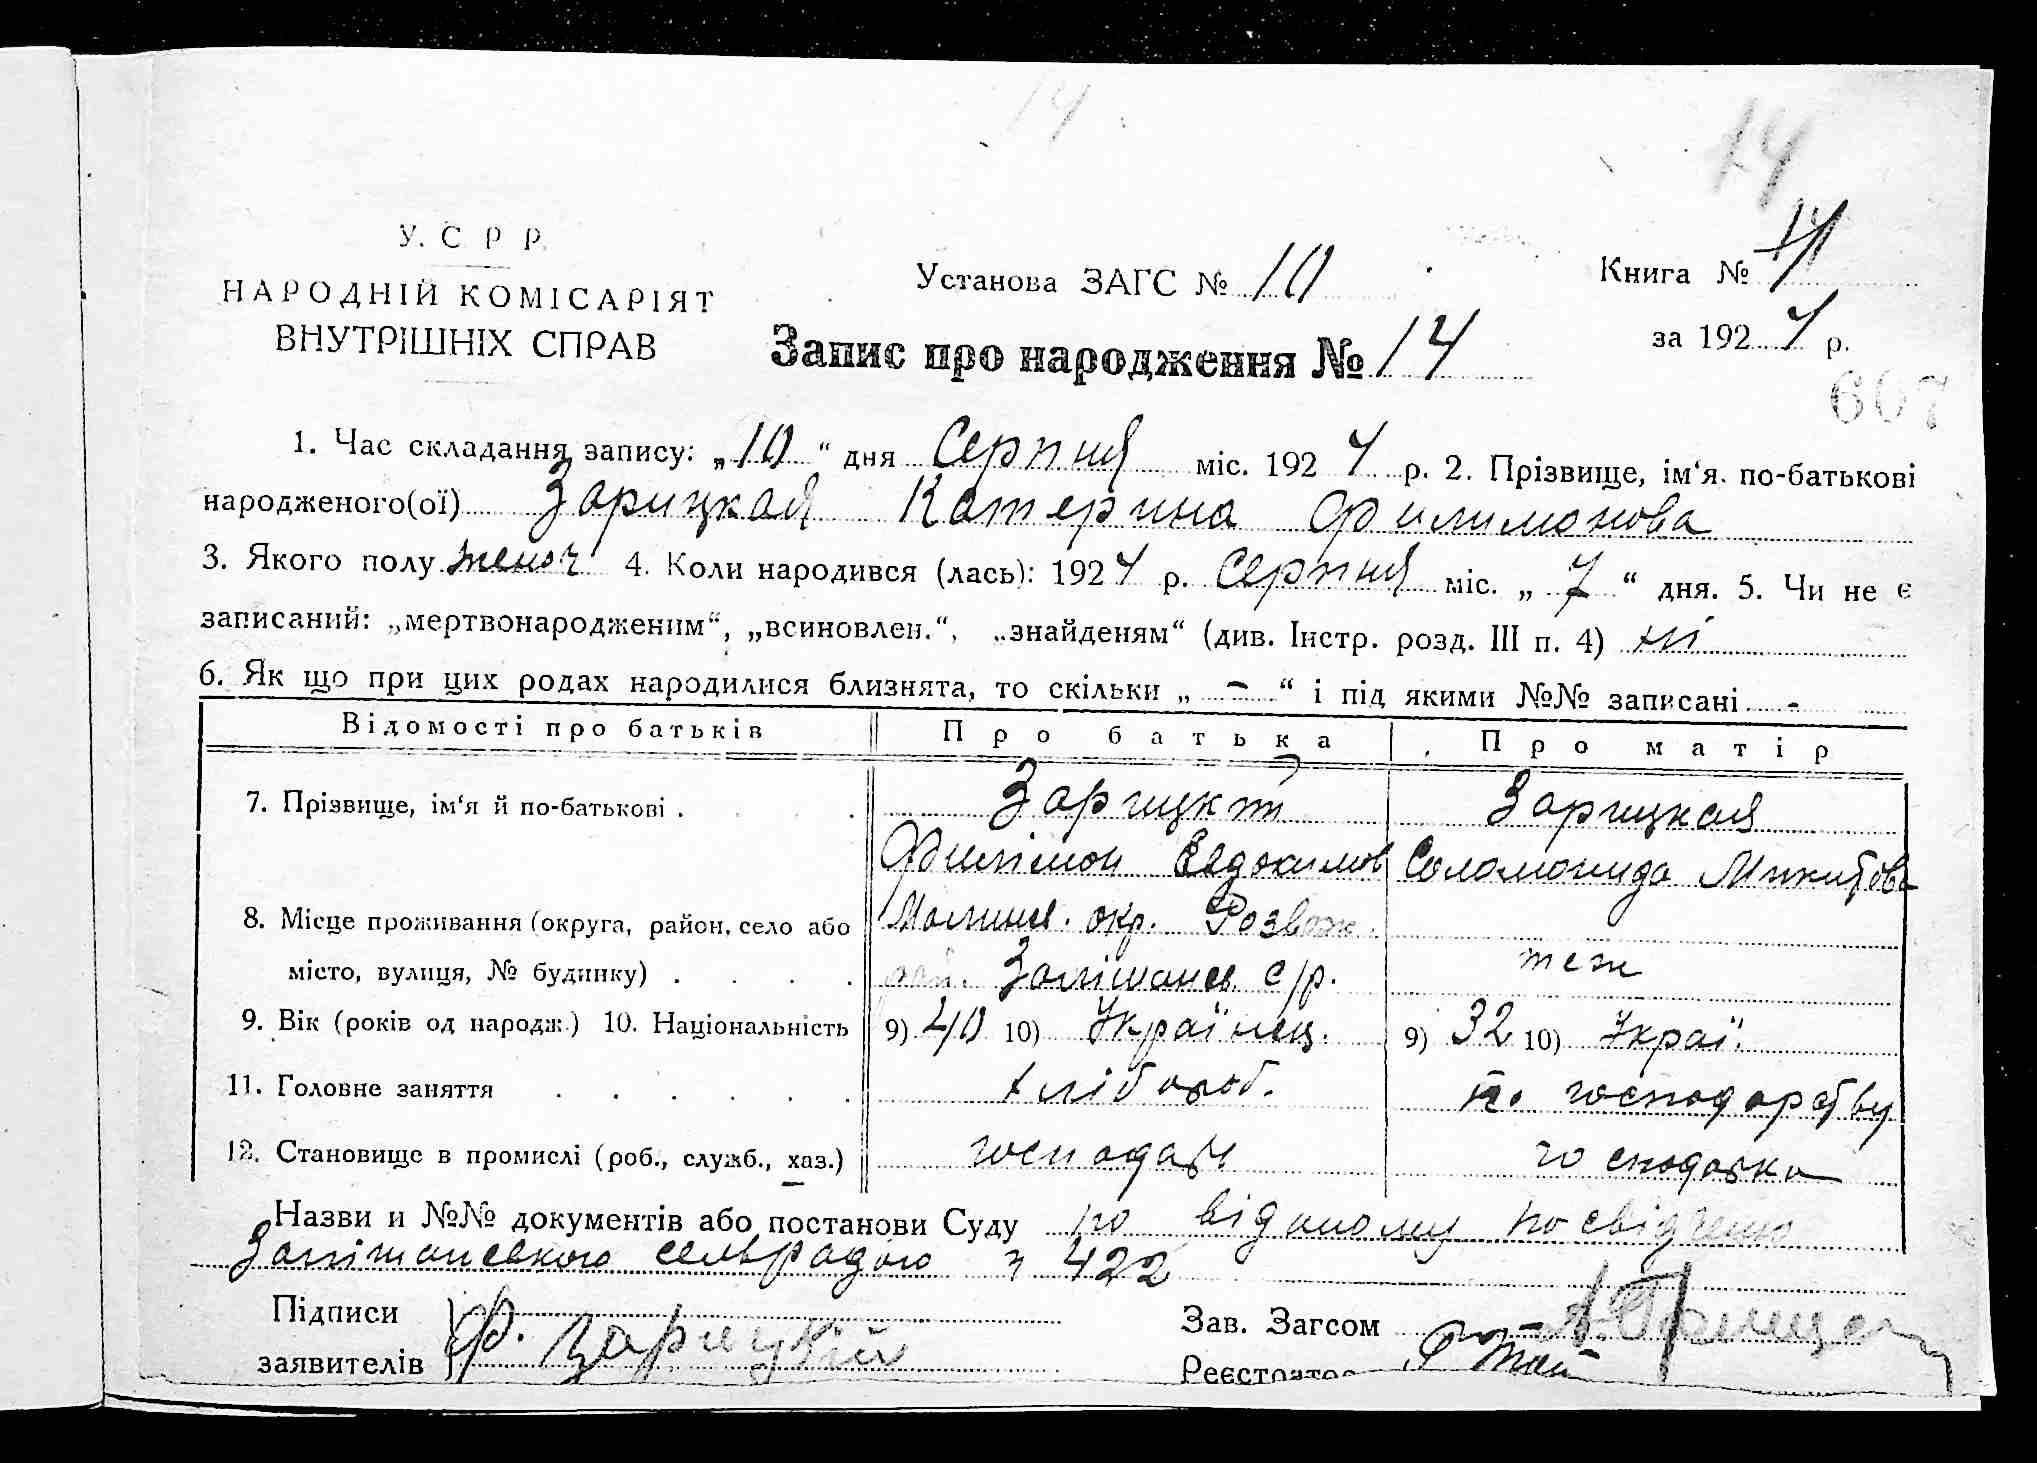 14
14
У. С Р Р.
НАРОДНІЙ КОМІСАРІЯТ
ВНУТРІШНІХ СПРАВ
Установа ЗАГС № 10
Книга №
за 1924 р.
Запис про народження № 14
607
1. Час складання запису: „10“ дня Серпня міс. 1924 р. 2. Прізвище, ім‘я. по-батькові
народженого(ої) Зарицкая Катерина Филимонова
3. Якого полу женоч 4. Коли народився (лась): 1924 р. Серпня міс. „7“ дня. 5. Чи не є
записаний: „мертвонародженим“, „всиновлен.“, „знайденям“ (див. Інстр. розд. III п. 4) ні
6. Як що при цих родах народилися близнята, то скільки „ - “ і під якими №№ записані -
Відомості про батьків Про батька Про матір
7. Прізвище, ім‘я й по-батькові . Зарицкій Зарицкая
Филімон Евдокимов Соломонида Микитова
8. Місце проживання (округа, район, село або Малинс. окр. Розваж.
місто, вулиця, № будинку) . рай. Залішанс. с/р. теж
9. Вік (років од народж.) 10. Національність 9) 40 10) Українец. 9) 32 10) Украї.
11. Головне заняття хлібороб. по господарству
12. Становище в промислі (роб., служб., хаз.) господарь господарка
Назви и №№ документів або постанови Суду по відомому посвідченю
Залішанського сельрадою 422
Підписи
заявителів Ф. Зарицкій
Зав. Загсом
Реєстратор